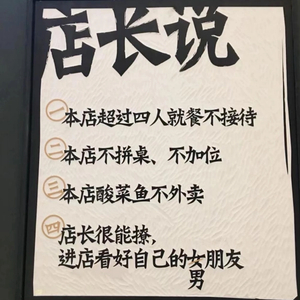 店长说
一 本店超过四人就餐不接待
二 本店不拼桌、不加位
三 本店酸菜鱼不外卖
四 店长很能撩，
进店看好自己的女朋友
男